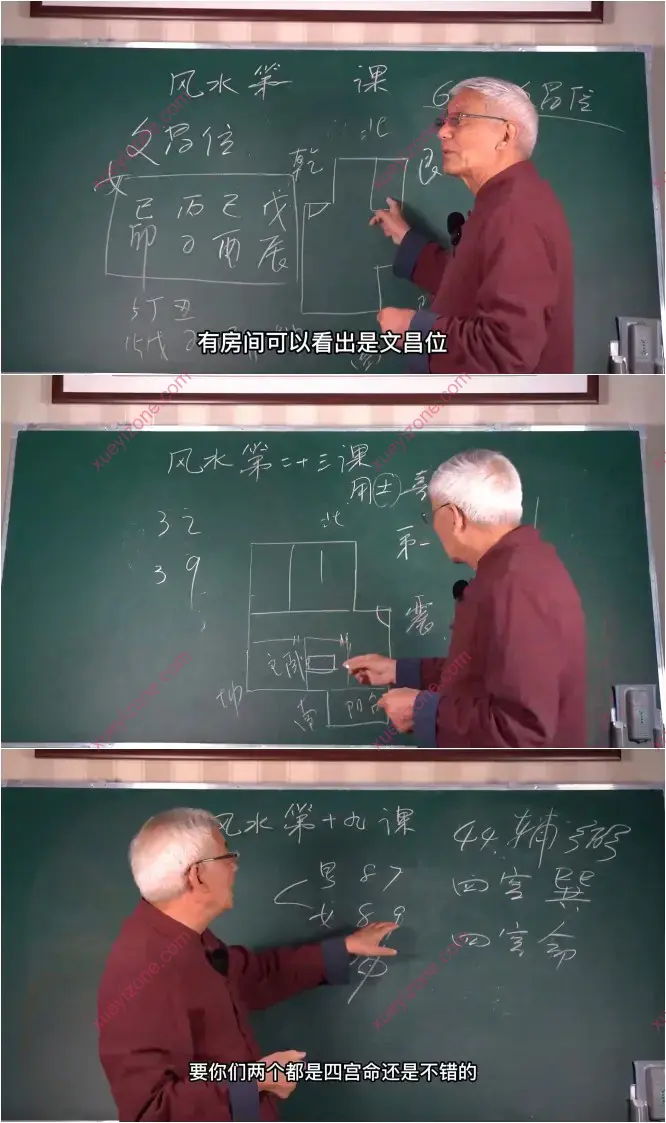 风水第 课
文昌位
北
乾
艮
昌位
女
己 丙 己 戊
卯 子 酉 辰
5丁丑
15戊
南
有房间可以看出是文昌位
xueyizone.com
风水第二十三课
用土 喜
32
39
北
第一
震
主卧
坤
南
阳台
xueyizone.com
风水第十九课
男 87
女 89
44.辅
四宫 巽
四宫命
要你们两个都是四宫命还是不错的
xueyizone.com